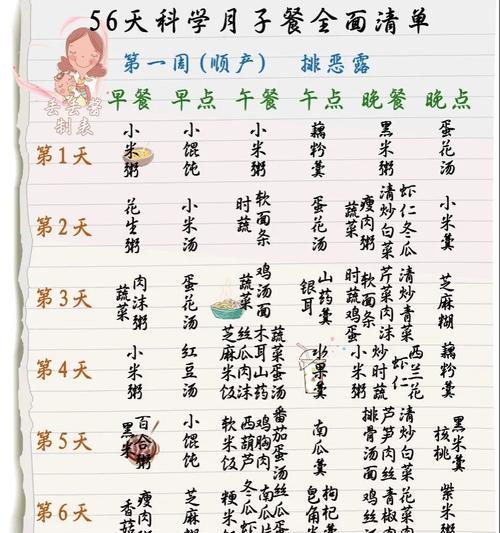 56天科学月子餐全面清单
第一周(顺产) 排恶露
丢丢酱
制表
早餐 早点 午餐 午点 晚餐 晚点
第1天 小米粥 小馄饨 小米粥 藕粉羹 黑米粥 蛋花汤
第2天 花生粥 小米汤 时蔬 软面条 蛋花羹 蔬菜 瘦肉粥 清炒白菜 虾仁冬瓜 小米羹
第3天 蔬菜 肉沫粥 蛋花汤 蔬菜 鸡汤面 银耳 山药羹 时蔬鸡蛋 软面条 芹菜肉沫 清炒青菜 芝麻糊
第4天 小米粥 红豆汤 芝麻米饭 丝瓜肉沫 木耳山药 蔬菜蛋汤 水果羹 小米粥 炒时蔬 虾仁 西兰花 藕粉羹
第5天 黑米 百合粥 小馄饨 软米饭 西葫芦 鸡胸肉 番茄蛋汤 南瓜羹 排骨汤面 芦笋肉丝 清炒白菜 核桃 黑米羹
第6天 香菇 瘦肉粥 芝麻 粳米 冬瓜虾 南瓜 丝瓜 皂角米 枸杞羹 青椒 花菜 紫米